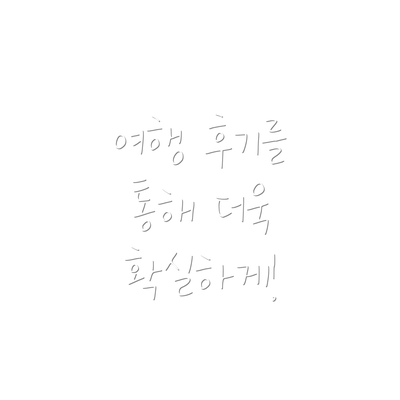 여행 후기를
통해 더욱
확실하게!